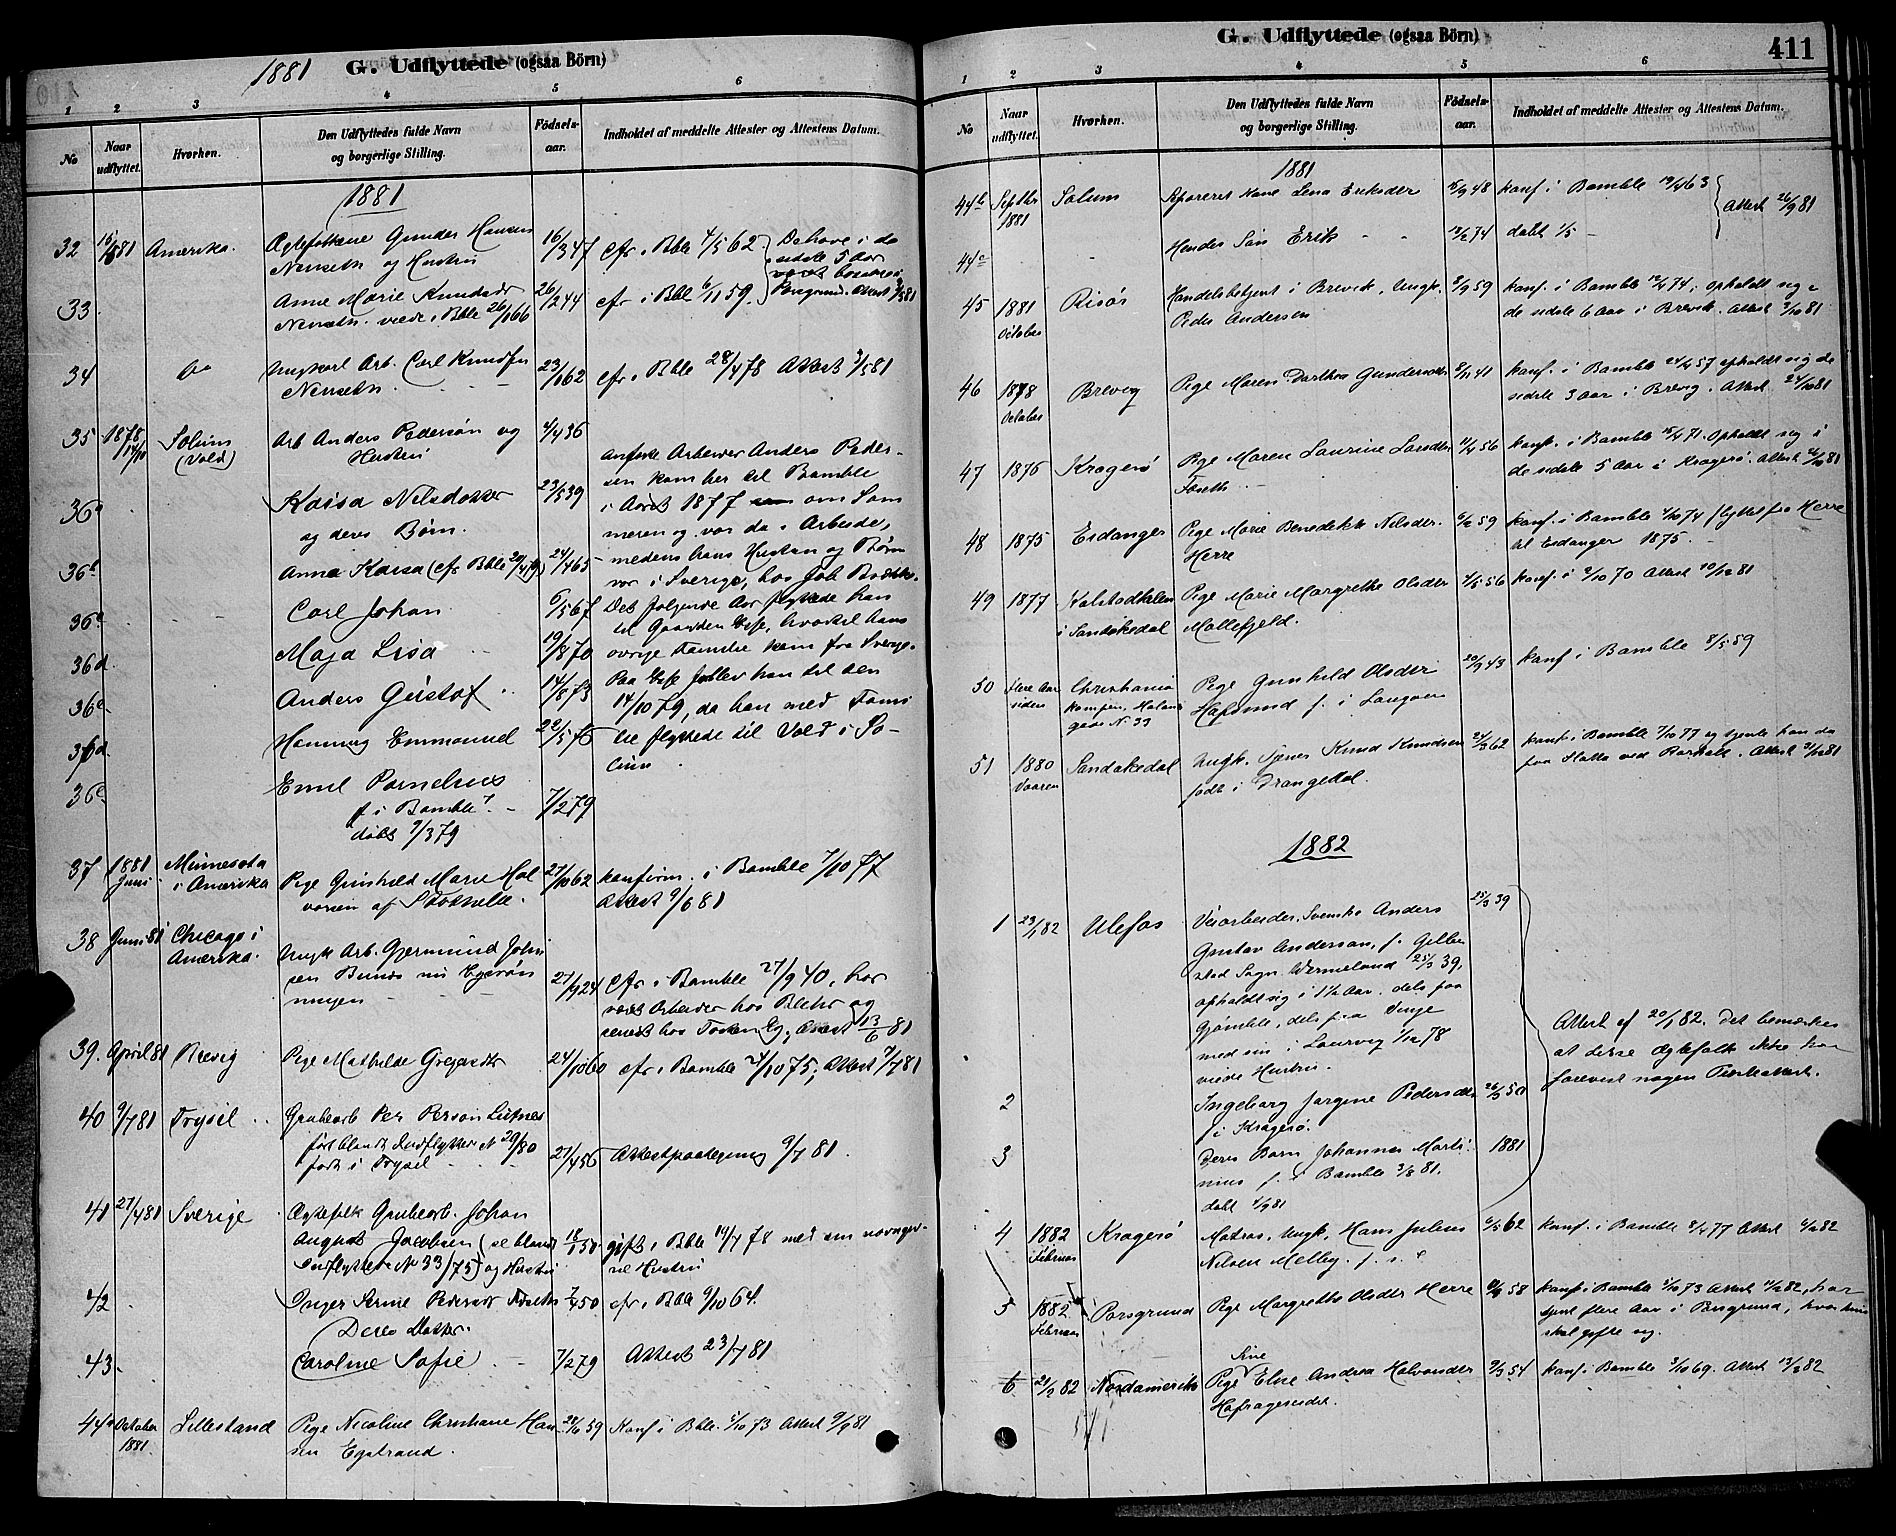 1881 G. Udflyttede (ogsaa Börn)
1 2 3 4 5 6
No
Naar udflyttet.
Hvorhen.
Den Udflyttedes fulde Navn og borgerlige Stilling.
Födsels-aar.
Indholdet af meddelte Attester og Attestens Datum.
1881
32 81 Amerika. Ægtefolkene Gunder Hansen 16/3 47 cfr. i Bble 4/5 62 De have i de
Nenseth og Hustru sidste 5 Aar
været bosatte i
33 Anne Marie Knudsdr 26/2 44 cfr i Bble 6/11 59. Porsgrund. Attest 3/5 81
Nenseth. viede i Bble 26/1 66
34 do Ungkarl Arb. Carl Knudsen 23/1 62 cfr. i Bble 28/4 78 Attest 3/5 81
Nenseth.
35 1878 14/10 Solum Arb Anders Pedersön og 4/4 36
(Vold) Hustru
anførte Arbeider Anders Peder-
sen kom her til Bamble
36a Kaisa Nilsdotter 23/5 39 i Aaret 1877 om Som
og deres Børn. meren og var da i Arbeide,
36b Anna Kaisa (cfr Bble 20/4 79) 24/4 65 medens hans Hustru og Børn
var i Sverige, hos Joh
36c Carl Johan 6/5 67 Det følgende Aar flyttede han
til Gaarden, hvortil hans
36d Maja Lisa 19/8 70 øvrige Familie kom fra Sverige.
36e Anders Gustof 14/8 73 Paa blev han til den
14/10 79, da han med Fami
36d Henning Emmanuel 22/5 76 lie flyttede til Vold i So-
lum.
36e Emil Pornelius
f. i Bamble 7/2 79
døbt 9/3 79
37 1881 Juni Minnesota Pige Gunhild Marie Hal 27/10 62 konfirm. i Bamble 7/10 77
i Amerika vorsen af Stokvelle. Attest 9/6 81
38 Juni 81 Chicago i Ungk Arb. Gjermund John
Amerika. sen 27/9 24 cfr. i Bamble 27/9 40, har
været Arbeider hos og
senest hos Attest 13/6 81
39. April 81 Brevig Pige Mathilde Gregersdtr 24/10 60 cfr. i Bamble 24/10 75, Attest 7/7 81
40 9/7 81 Trysil Grubearb Per Person Lutnes
ført blandt Indflyttere N 29/80
født i Trysil 27/4 56 Attestpaategning 9/7 81.
41 27/4 81 Sverige Ægtefolk Grubearb. Johan
August Jacobsen (se blandt 18/1 50 gift i Bble 14/4 78 med sin navngiv-
Indflyttede N 33/75) og Hustru ne Hustru
42 Inger Serine Pedersdr 50 cfr. i Bble 9/10 64.
Deres Datter.
43. Caroline Sofie 7/2 79 Attest 23/7 81
44a October 1881. Lillesand Pige Nicoline Christiane Han 59 Konf i Bble. 5/10 73 Attest 9/9 81
sen Egstrand.
G. Udflyttede (ogsaa Börn) 411
1 2 3 4 5 6
No
Naar udflyttet.
Hvorhen.
Den Udflyttedes fulde Navn og borgerlige Stilling.
Födsels-aar.
Indholdet af meddelte Attester og Attestens Datum.
1881
44b Septbr 1881 Solum Separeret Kone Lena Eriksdtr 15/9 48 konf. i Bamble 19/4 63 Attest 26/9 81
44c Hendes Søn Erik 12/2 74 døbt 1/5
45 1881 October Risör Handelsbetjent i Brevik, Ungk. 59 konf. i Bamble 12/4 74, opholdt sig i
Peder Andersen de sidste 6 Aar i Brevik. Attest 3/10 81
46 1878 October Brevig Pige Maren Dorthea Gundersdtr 41 konf. i Bamble 24/4 57 opholdt sig de
sidste 3 Aar i Brevig. Attest 24/10 81
47 1876 Kragerö Pige Maren Laurine Larsdtr 56 konf. i Bamble 15/4 71. Opholdt sig i
Foseth de sidste 5 Aar i Kragerö. Attest 26/10 81
48 1875 Eidanger Pige Marie Benedikte Nilsdtr. 59 konf. i Bamble 4/10 74 flyttet fra Herre
Herre til Eidanger 1875.
49 1877 Kalstadkilen Pige Marie Margrethe Olsdtr 4/5 56 konf. i 2/10 70 Attest 10/12 81
i Sandøkedal Møllefjeld.
50 Flere Aar siden Christiania Pige Gunhild Olsdtr 20/9 43 konf i Bamble 8/5 59
Kampen, gade N. 33 Hafsund f. i Langøen
51 1880 Vaaren Sandøkedal Ungk. Tjener Knud Knudsen 62 konf. i Bamble 7/10 77 og tjente han da
født i Drangedal. paa ved. Attest 81
1882
1 23/1 82 Ulefos Veiarbeider, Svenske Anders 25/3 39
Gustav Andersson, f. Gillber
stad Sogn Wermeland 25/3 39,
opholdt sig i 1½ Aar. dels paa
Gjømle, dels paa Tinge
med sin i Laurvig 1/12 78
viede Hustru.
Attest af 20/1 82. Det bemærkes
at disse Ægtefolk ikke har
forevist nogen Presteattest.
2 Ingeborg Jørgine Pedersdtr 26/3 50
f. i Kragerö.
3 Deres Barn Johannes Marti- 1881
nius f. i Bamble 3/8 81.
døbt 4/9 81
4 1882 Februar Kragerö Matros, Ungk, Hans Julius 6/5 62 konf. i Bamble 77 Attest 82
Nilsen Melby. f. s.
5 1882 Februar Porsgrund Pige Margrethe Olsdtr Herre 58 konf i Bamble 5/10 73 Attest 82, har
tjent flere Aar i Porsgrund, hvor hun
skal gifte sig.
6 21/2 82 Nordamerika Pige Sine Else Andrea Halvorsdtr 9/3 54 konf i Bamble 3/10 69. Attest 13/2 82